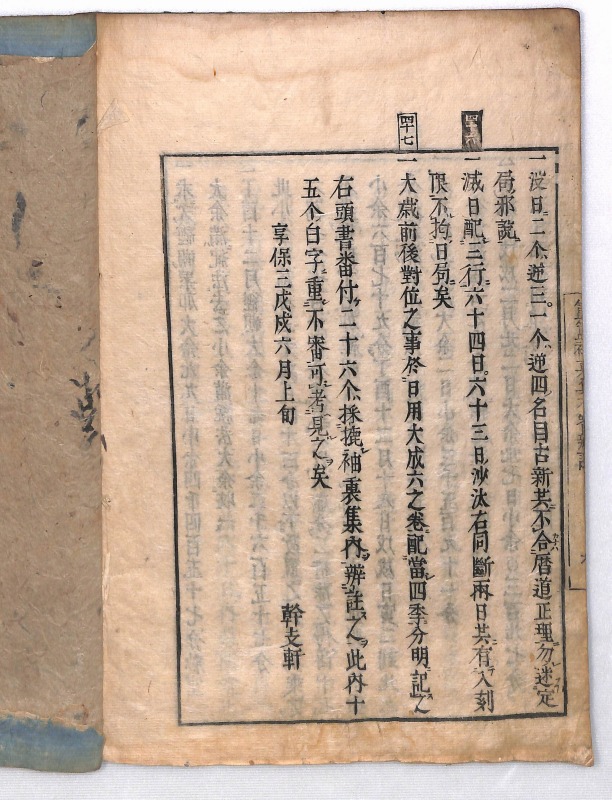 一 没日二个逆三一个逆四名目古新共不合暦道正理勿迷定
局邪説
一 滅日配三行六十四日六十三日沙汰右同断兩日共有入刻
限不拘日局矣
四十七
一 大歳前後對位之事於日用大成六之卷配當四季分明記之
右頭書番付二十六个採摭袖裏集内辨註之此内十
五个白字重不審可考見之矣
享保三戊戌六月上旬
幹支軒